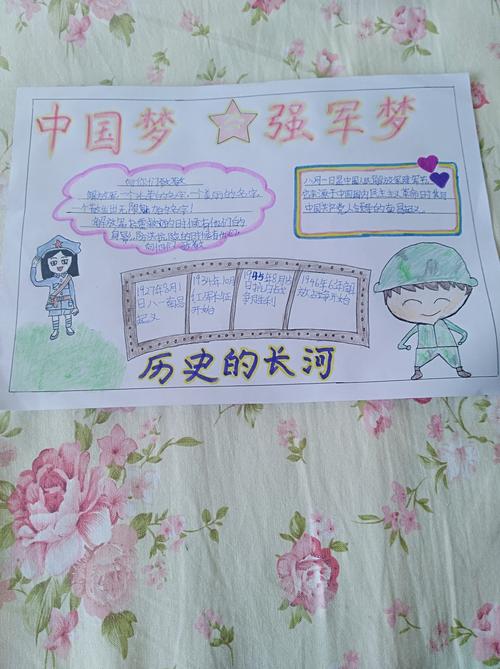 中国梦 强军梦
向你们致敬
解放军一个光荣的名字,一个美丽的名字,
一个散发出无限魅力的名字!
八月一日是中国人民解放军建军节,
它来源于中国国内民主主义革命时期
中国共产党人领导的南昌起义。
1927年8月1日八一南昌起义
1934年10月红军长征开始
1945年8月15日抗日战争胜利
1946年6年解放战争开始
历史的长河